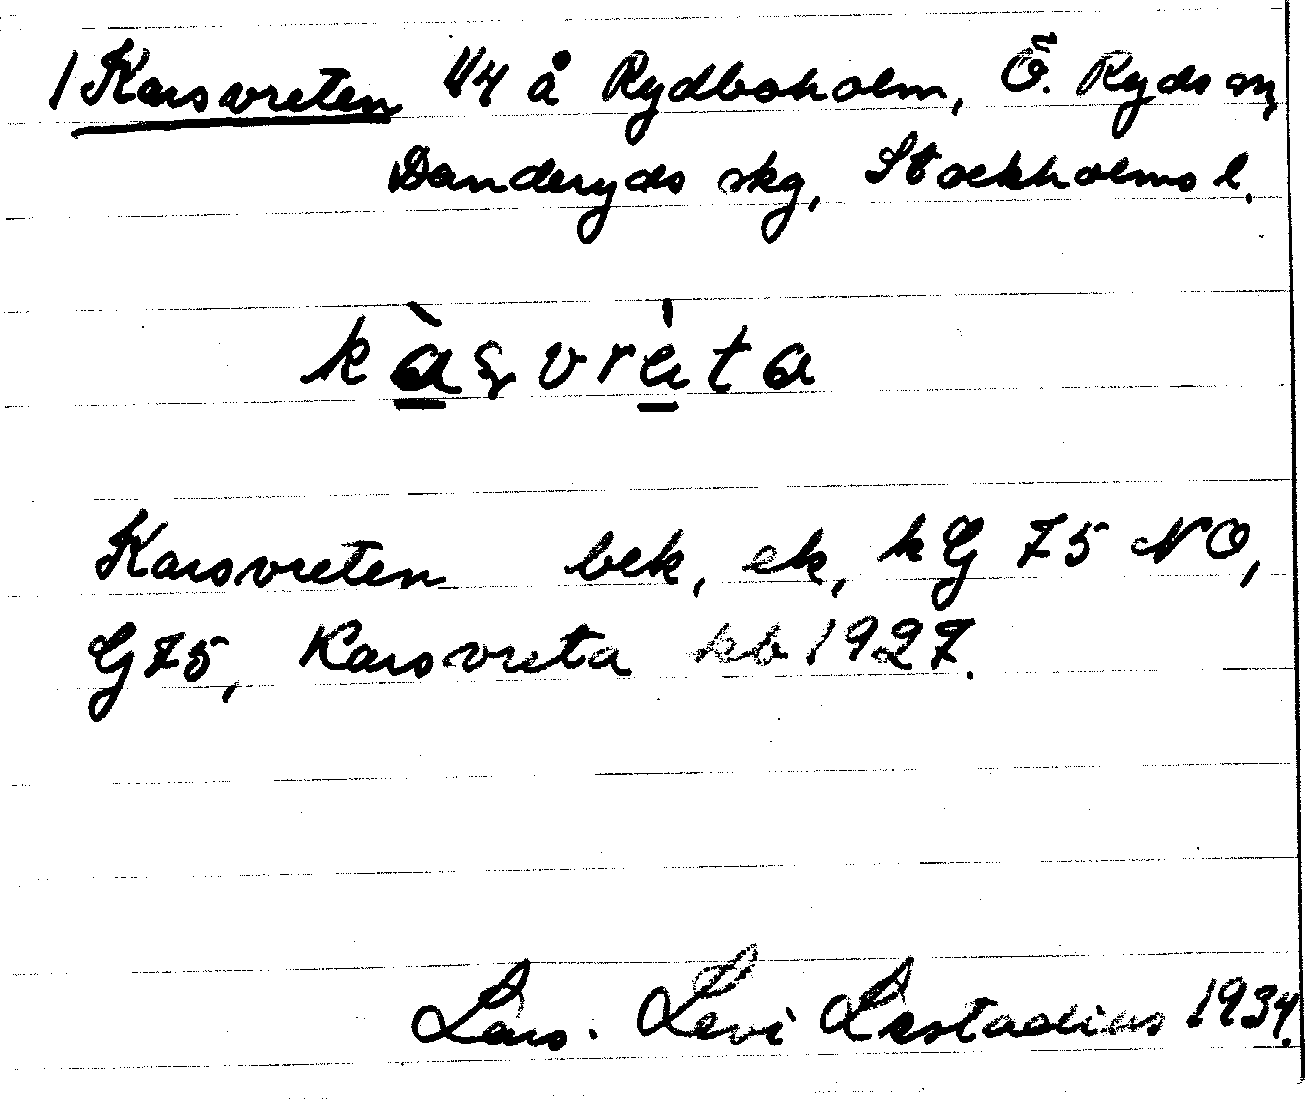 1 Karsvreten 1/4 å Rydboholm, Ö. Ryds sn,
Danderyds skg, Stockholms l.
kàşvrèta
Karsvreten bek, ek, hG 75 NO,
G 75, Karsvreta kb 1927.
Lars. Levi Læstadius 1934.